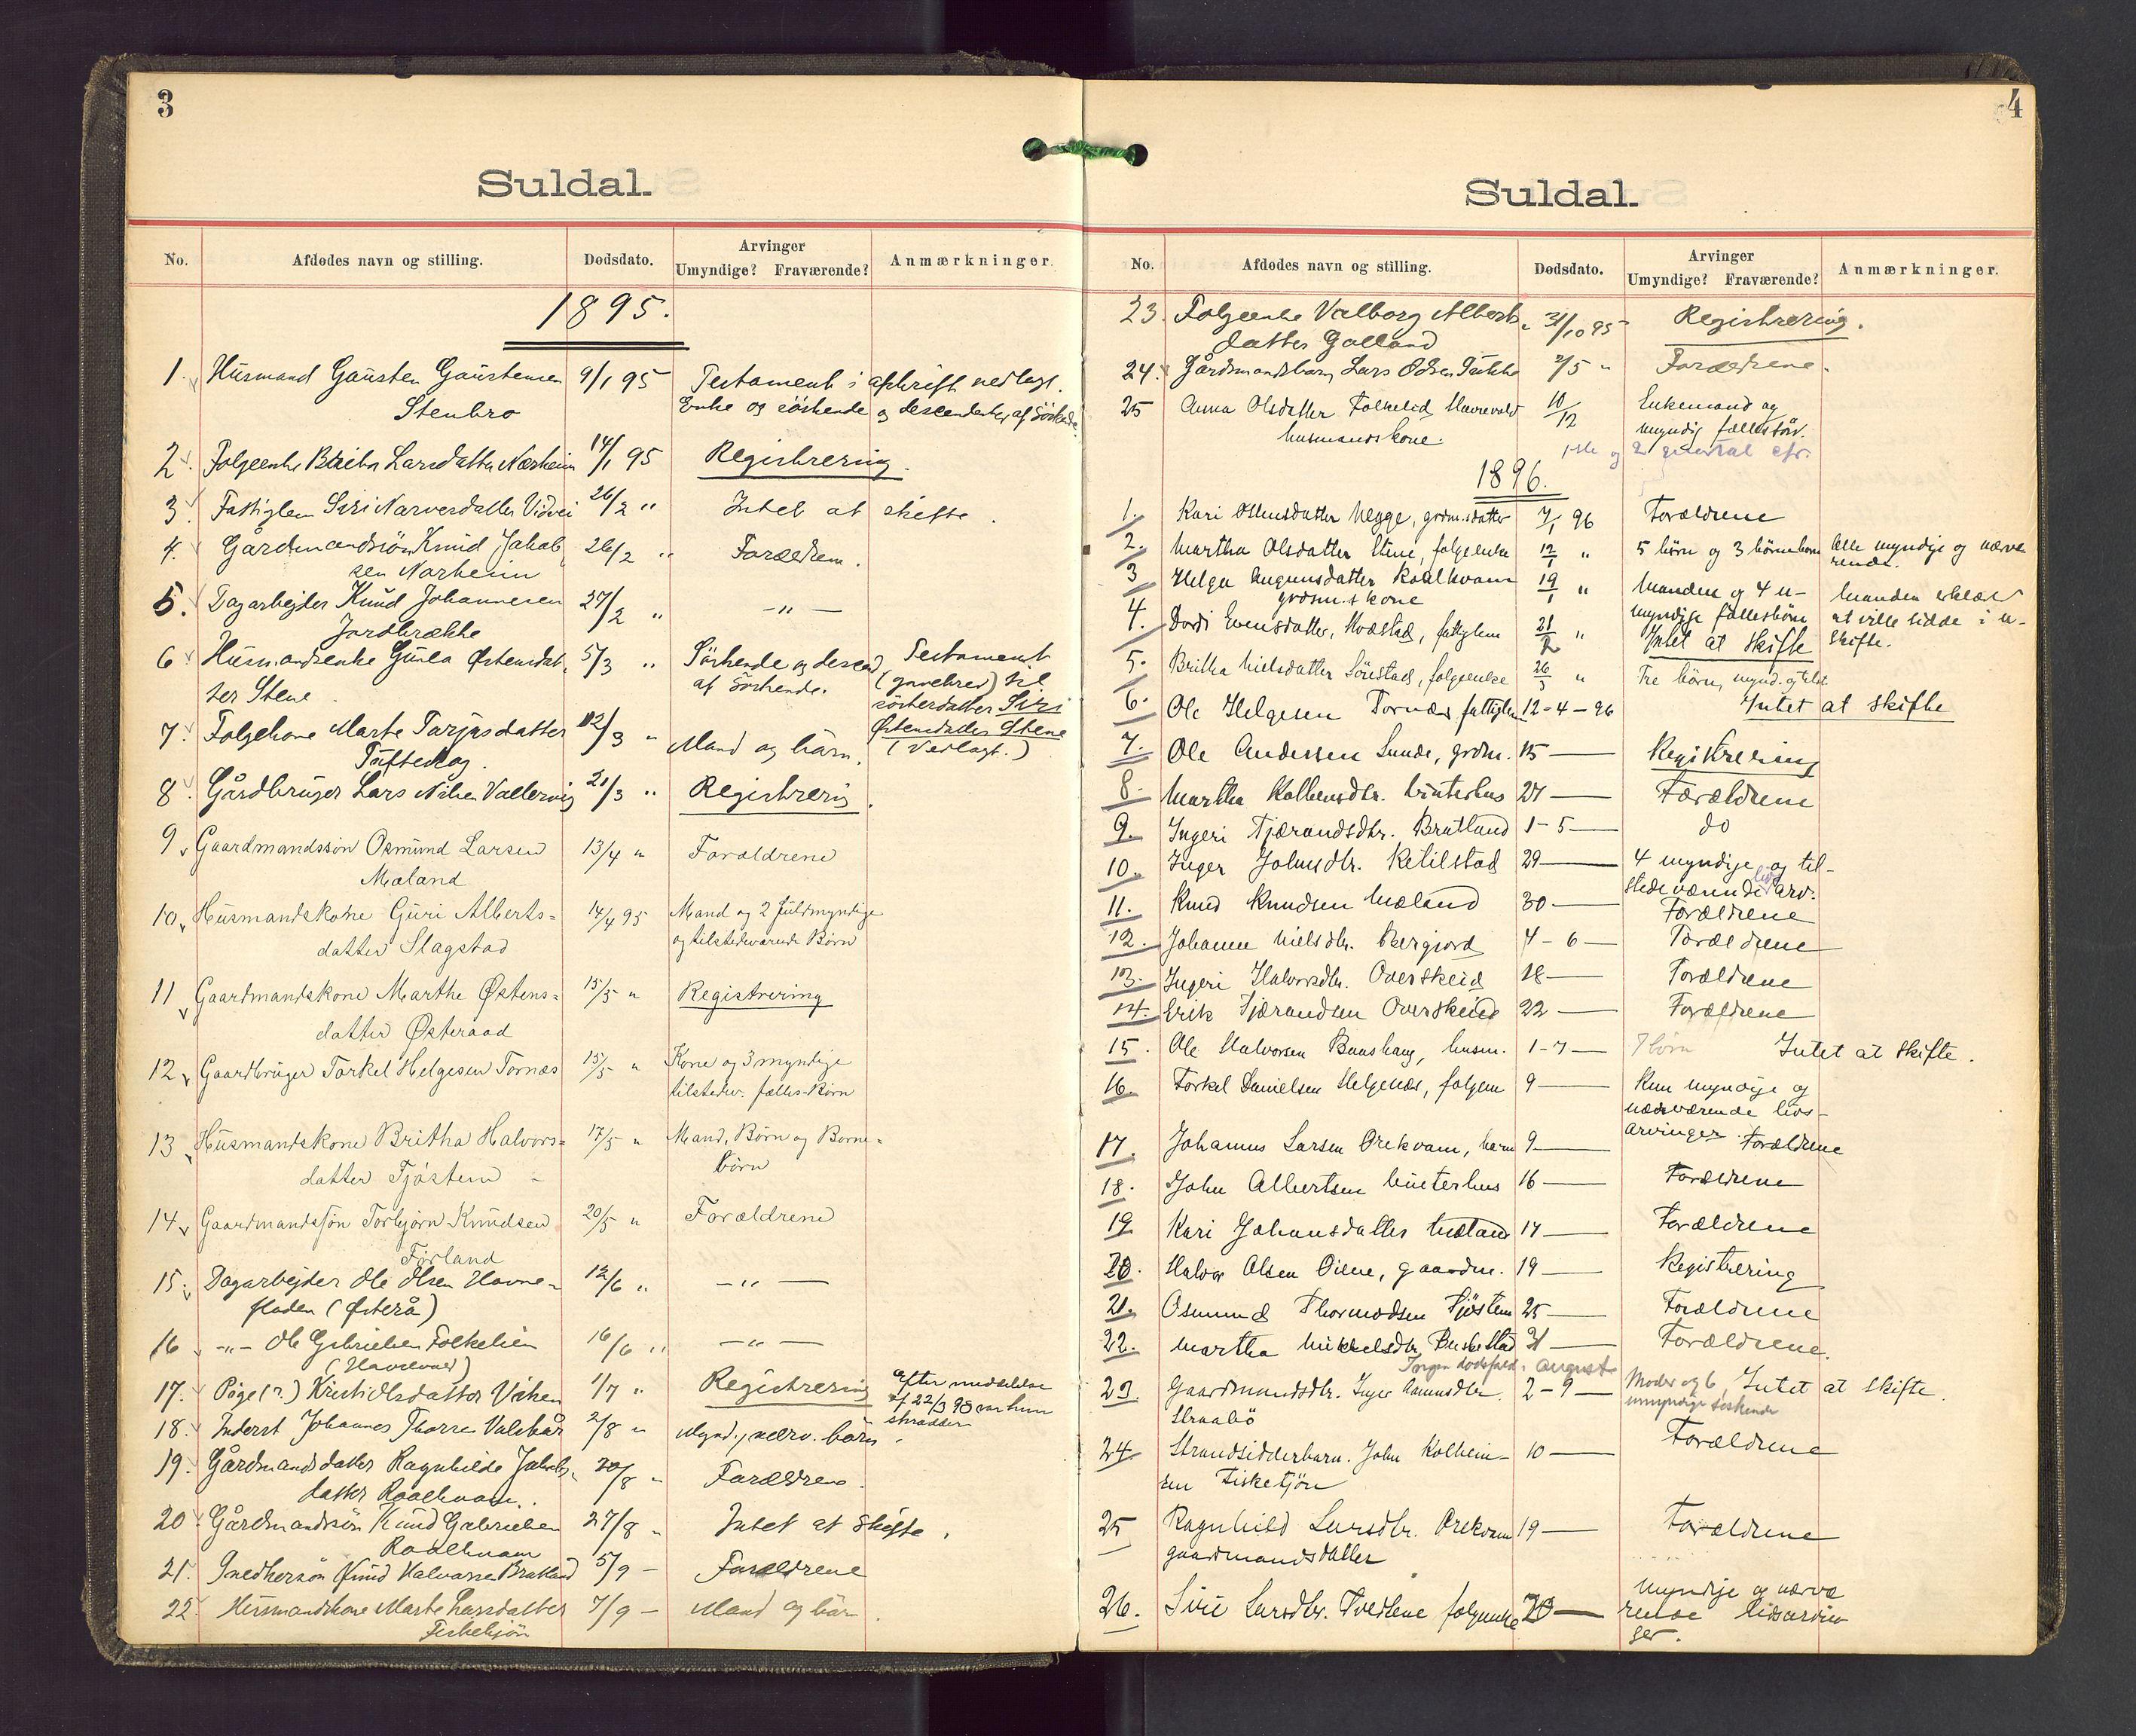 3
Suldal.
No. Afdødes navn og stilling. Dødsdato. Arvinger Umyndige? Fraværende? Anmærkninger.
1895.
1. Husmand Gausten Gaustensen 9/1 95 Testament i afskrift nedlagt.
Stenbro Enke og söskende og descendenter af Söskende.
2. Folgeenke Larsdatter Nærheim 14/1 95 Registrering.
3. Fattiglem Siri Narvesdatter 26/2 " Intet at skifte.
4. Gårdmandssön Knud Jakob 26/2 " Forældrene.
sen Norheim
5. Dagarbejder Knud Johannesen 27/2 " - " -
Jordbrække
6 Husmandsenke Gunla Østensdat- 5/3 " Söskende og descend. Testament
ter Stene af Söskende. (gavebrev) til
sösterdatter Siri
Østensdatter Stene
(Vedlagt.)
7. Folgekone Marte Tarjasdatter 12/3 " Mand og börn.
8. Gårdbruger Lars Nilsen Vallervig 21/3 " Registrering.
9 Gaardmandssön Osmund Larsen 13/4 " Forældrene
Mæland
10. Husmandskone Guri Alberts= 14/4 95 Mand og 2 fuldmyndige
datter Slagstad og tilstedeværende Börn
11 Gaardmandskone Marthe Østens= 15/5 " Registrering
datter Østeraad
12 Gaardbruger Torkel Helgesen Tornæs 15/5 " Kone og 3 myndige
tilstedev. fælles-Börn
13 Husmandskone Britha Halvors= 17/5 " Mand, Börn og Borne=
datter Tjöstem börn
14 Gaardmandssön Torbjörn Knudsen 20/5 " Forældrene
Förland
15. Dagarbejder Ole Olsen Havne- 12/6 " - " -
floden (Østerå)
16 - " - Ole Gabrielsen Folkelien 16/6 " - " -
17. Pige (?) Kirsti Olsdatter 1/7 " Registrering Efter meddelelse
af 22/3 98 var hun
18. Inderst Johannes 2/8 " Mynd., nærv. börn.
19. Gårdmandsdatter Ragnhilde Jakobs- 20/8 " Forældrene.
datter Roalkvam.
20 Gårdmandssön Knud Gabrielsen 27/8 " Intet at skifte.
Roalkvam
21. Snedkersön Knud Halvorsen Bratland 5/9 - Forældrene
22. Husmandskone Marte Larsdatter 7/9 - Mand og börn.
Fiskekjön
4
Suldal.
No. Afdødes navn og stilling. Dødsdato. Arvinger Umyndige? Fraværende? Anmærkninger.
23. Folgeenke Valborg Alberts- 31/10 95 Registrering.
datter Golland
24. Gårdmandsbarn Lars Odsen 2/5 " Forældrene.
25 Anna Olsdatter Folkelid Havrevold 10/12 Enkemand og
husmandskone. myndig fællesbörn.
1ste og 2
1896.
1. Kari Østensdatter Hegge, grdm.sdatter 7/1 96 Forældrene
2. Martha Olsdatter Stene, folgeenke 12/1 " 5 börn og 3 börnebörn Alle myndige og nærvæ
rende.
3 Helga Augunsdatter Roalkvam 19/1 " Manden og 4 u- Manden erklær
grdm.skone myndige fællesbörn at ville sidde i u-
4. Dordi Evensdatter, Mostad, fattiglem 21/2 " Intet at skifte skifte.
5. Britha Nielsdatter Sönstad, folgeenke 26/3 " Tre börn, mynd. og
6. Ole Helgesen Tornæs fattiglem 12-4-96 Intet at skifte
7. Ole Andersen Lunde, grdm. 15 — Registrering
8. Martha Kolbensdtr. Vinterhus 27 — Forældrene
9. Ingeri Tjærandsdtr. Bratland 1-5 — do
10. Inger Johnsdtr. Ketilstad 29 — 4 myndige og til-
stedeværende livsarv.
11. Knud Knudsen Mæland 30 — Forældrene
12. Johanne Nielsdtr. Bergjord 4-6 — Forældrene
13. Ingeri Halvorsdtr. Overskeid 18 — Forældrene
14. Erik Tjærandsen Overskeid 22 — Forældrene
15. Ole Halvorsen Baushaug, husm. 1-7 — 7 börn Intet at skifte.
16. Torkel Danielsen Helgenæs, folgem 9 — Kun myndige og
nærværende livs-
arvinger.
17. Johannes Larsen Orekvam, barn 9 — Forældrene
18. John Albertsen Vinterhus 16 — Forældrene
19 Kari Johansdatter Mæland 17 — Forældrene
20. Halvor Olsen Øiene, gaardm. 19 — Registrering
21. Osmund Thormodsen Tjöstem 25 — Forældrene
22. Martha Mikkelsdtr. 31 — Forældrene.
Ingen dödsfald i August
23. Gaardmandsdtr. Inger Aamundsdtr. 2-9 — Moder og 6 Intet at skifte.
Straabö umyndige söskende
24. Strandsidderbarn. John Kolbein- 10 — Forældrene
sen Fisketjön
25 Ragnhild Larsdtr. Orekvam 19 — Forældrene
gaardmandsdatter
26. Siri Larsdtr. folgeenke 20 — Myndige og nærvæ
rende livsarvin
ger.